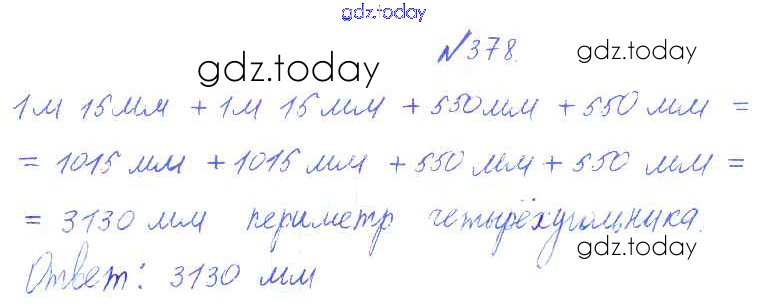 gdz.today
№378. gdz.today
gdz.today
1м 15мм + 1м 15 мм + 550мм + 550 мм =
= 1015 мм + 1015 мм + 550 мм + 550 мм =
= 3130 мм периметр четырёхугольника.
gdz.today
Ответ: 3130 мм